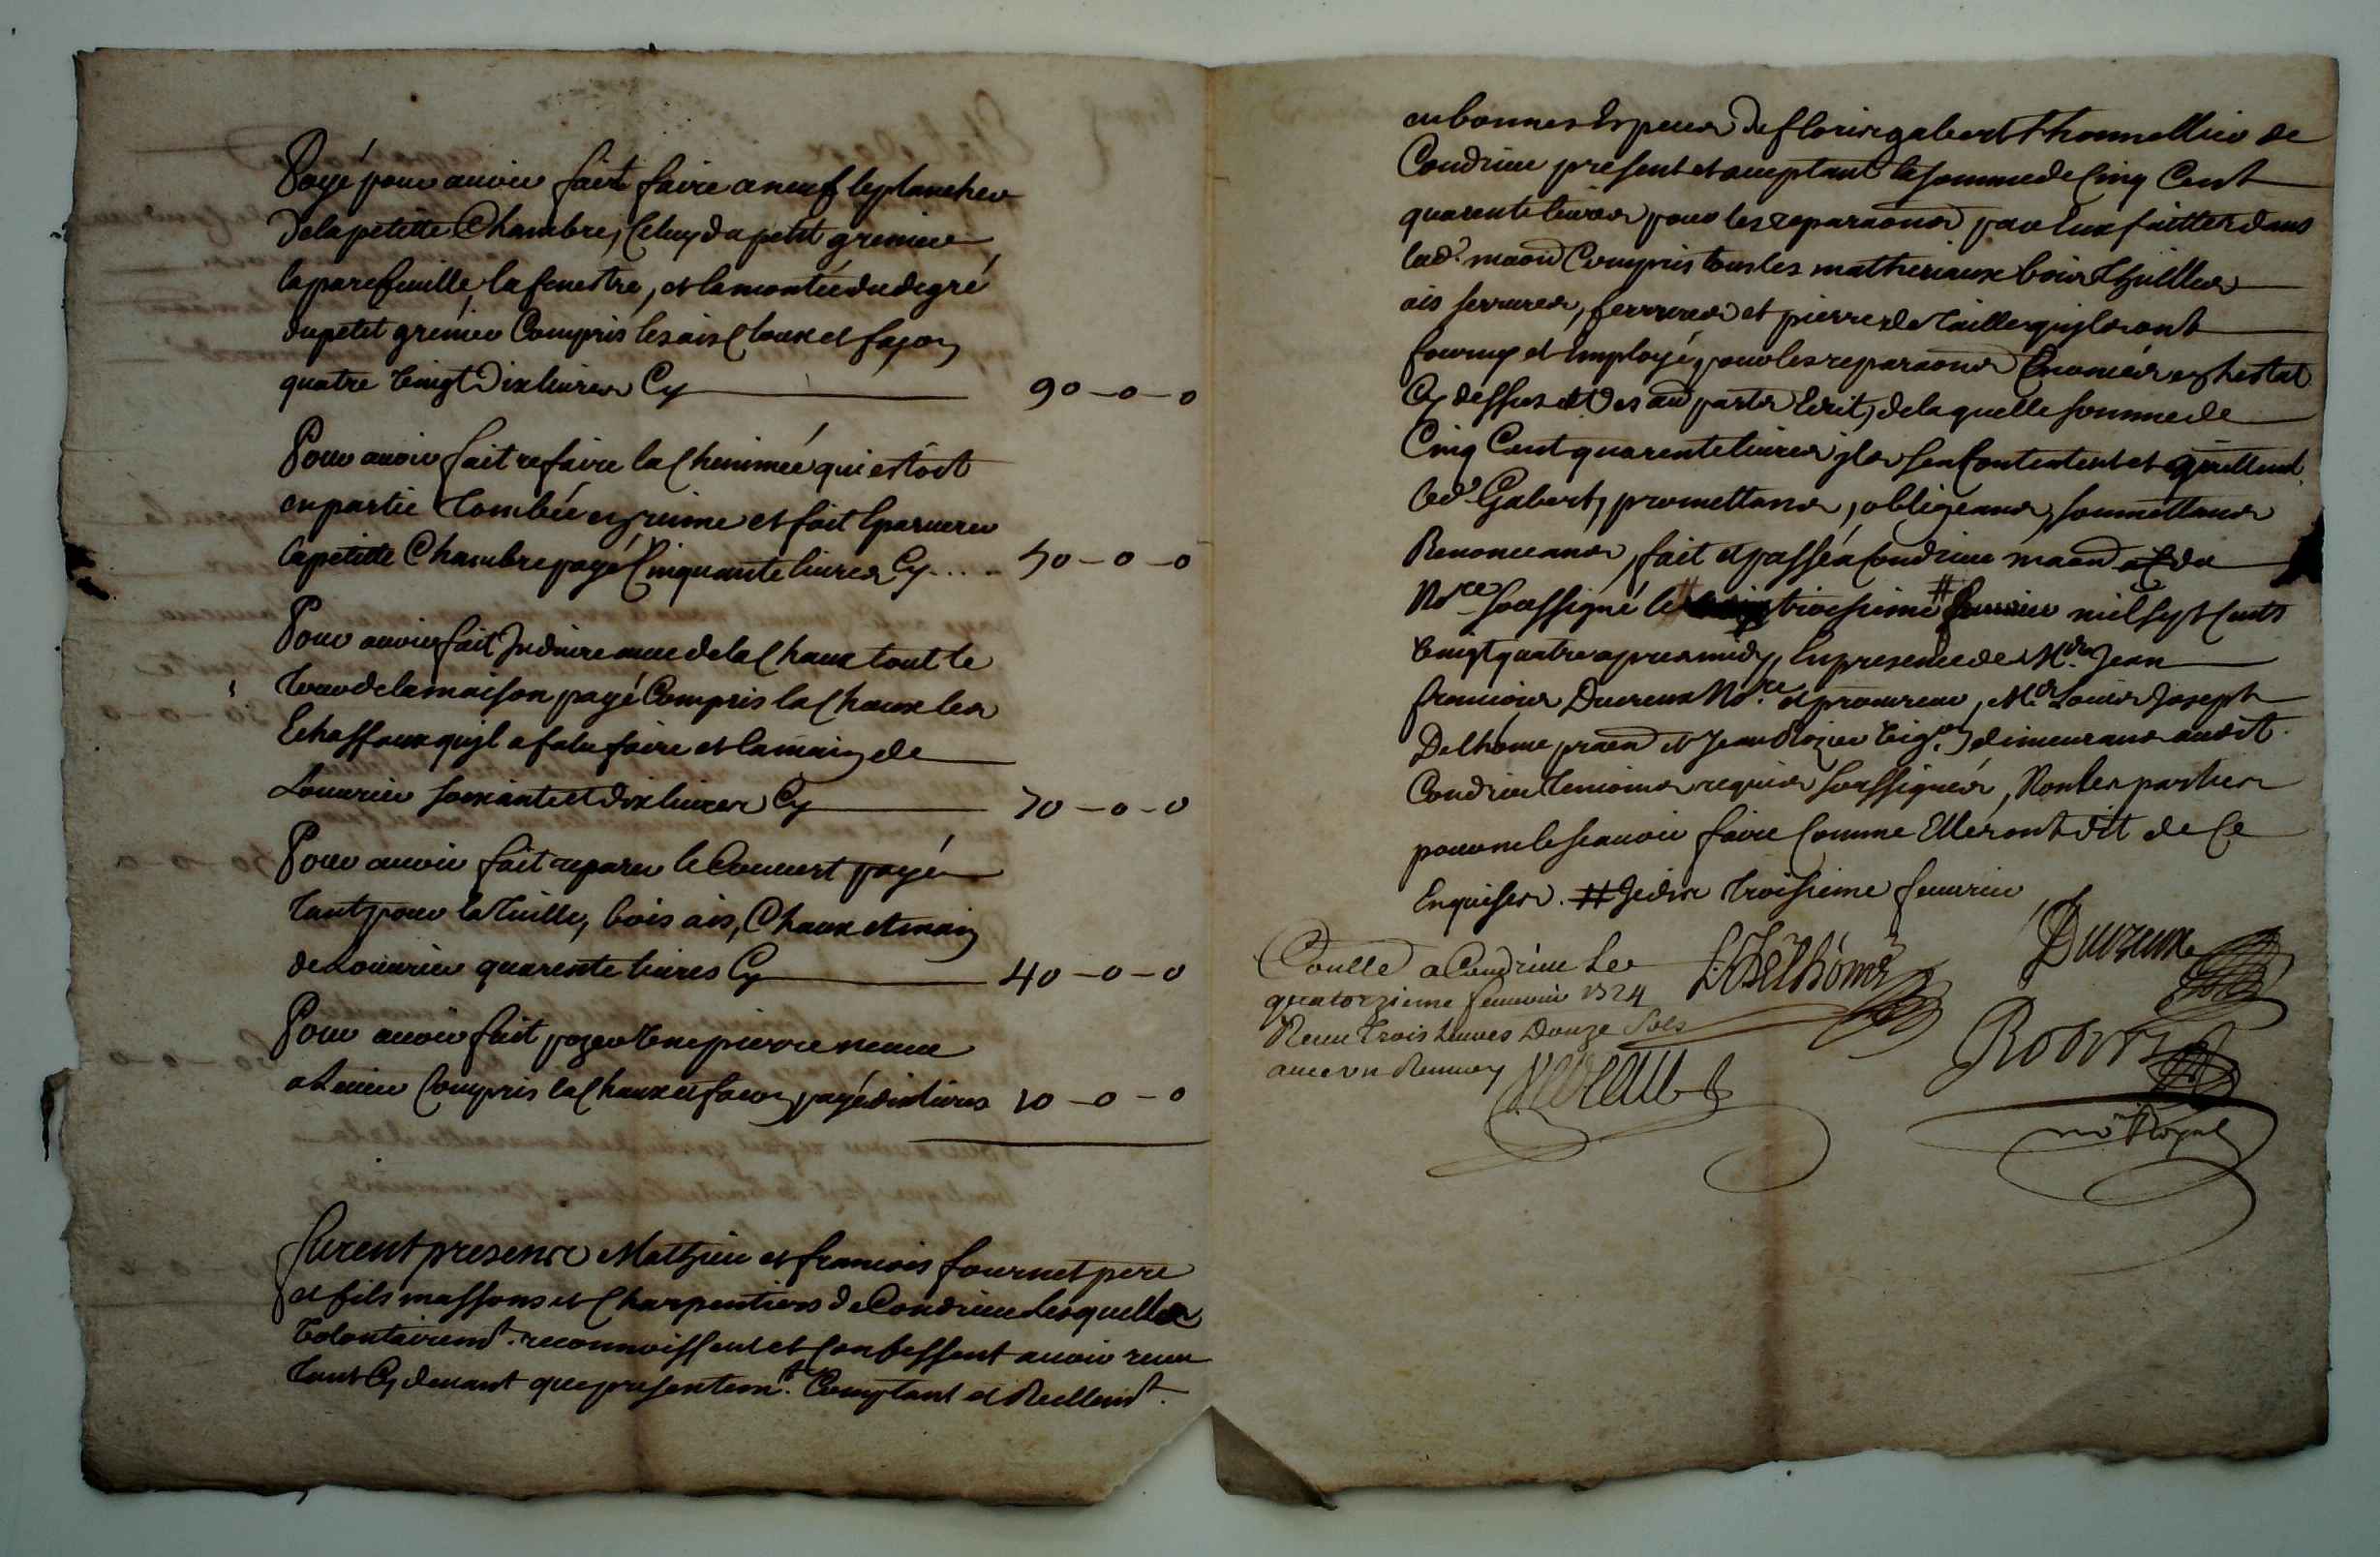 Payé pour auoir fait faire a neuf le plancher
de la petitte Chambre, Celuy du petit grenier
la parefeuille, la fenestre, et la montée du degré
du petit grenier Compris les ais Cloux et façon
quatre vingt Dix liures Cy 90-0-0
Pour auoir fait refaire la Cheminée qui estoit
en partie tombée en ruine et fait
la petitte Chambre payé Cinquante liures Cy.... 50-0-0
Pour auoir fait Induire auec de la Chaux tout le
tour de la maison payé Compris la Chaux les
Echaffaux quyl a falu faire et la main de
Louurier soixante et dix liures Cy 70-0-0
Pour auoir fait reparer le Couuert payé
tant pour la tuille, bois ais, Chaux et main
de Louurier quarente liures Cy 40-0-0
Pour auoir fait pozer vne pierre neuue
a Leuier Compris la Chaux et façon payé dix liures 10-0-0
furent presens Mathieu et francois fournet pere
et fils massons et Charpentiers de Condrieu Lesquelles
volontairemt. reconnoissent et Confessent auoir receu
tant Cy deuant que presentemt. Comptant et Reellemt.
en bonnes Especes de floris gabert de
Condrieu present et acceptant la somme de Cinq Cent
quarente liures pour les reparaons par Eux faittes dans
lad. maon Compris tous les matheriaux bois Thuilles
ais serrures, ferrures et pierre de taille quyls ont
fourny et Employé pour les reparaons Enoncés en Lestat
Cy dessus et des au parts Ecrit, de laquelle somme de
Cinq Cent quarente liures jls sen Contentent et quittent
led. Gabert, promettans, obligeans, soumettans
Renonceans, fait et passé a Condrieu maon du
Nore soussigné le troisieme # feurier mil sept Cents
vingt quatre apres midy, En presence de Me. Jean
francois Dureux Nore. et procureur, Me. Louis Joseph
Delhome praen et Jean vig.on demeurans audit
Condrieu temoins requis soussignés, Non les parties
pour ne le scauoir faire Comme Elles ont dit de Ce
Enquises. # Je dis troisieme feurier
Conllé a Condrieu Le
quatorzieme feurier 1724
Receu trois Liures Douze sols
L J Delhome
Dureux
Nore Royal